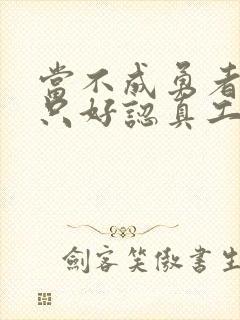 當不成勇者
只好認真工
劍客笑傲書生